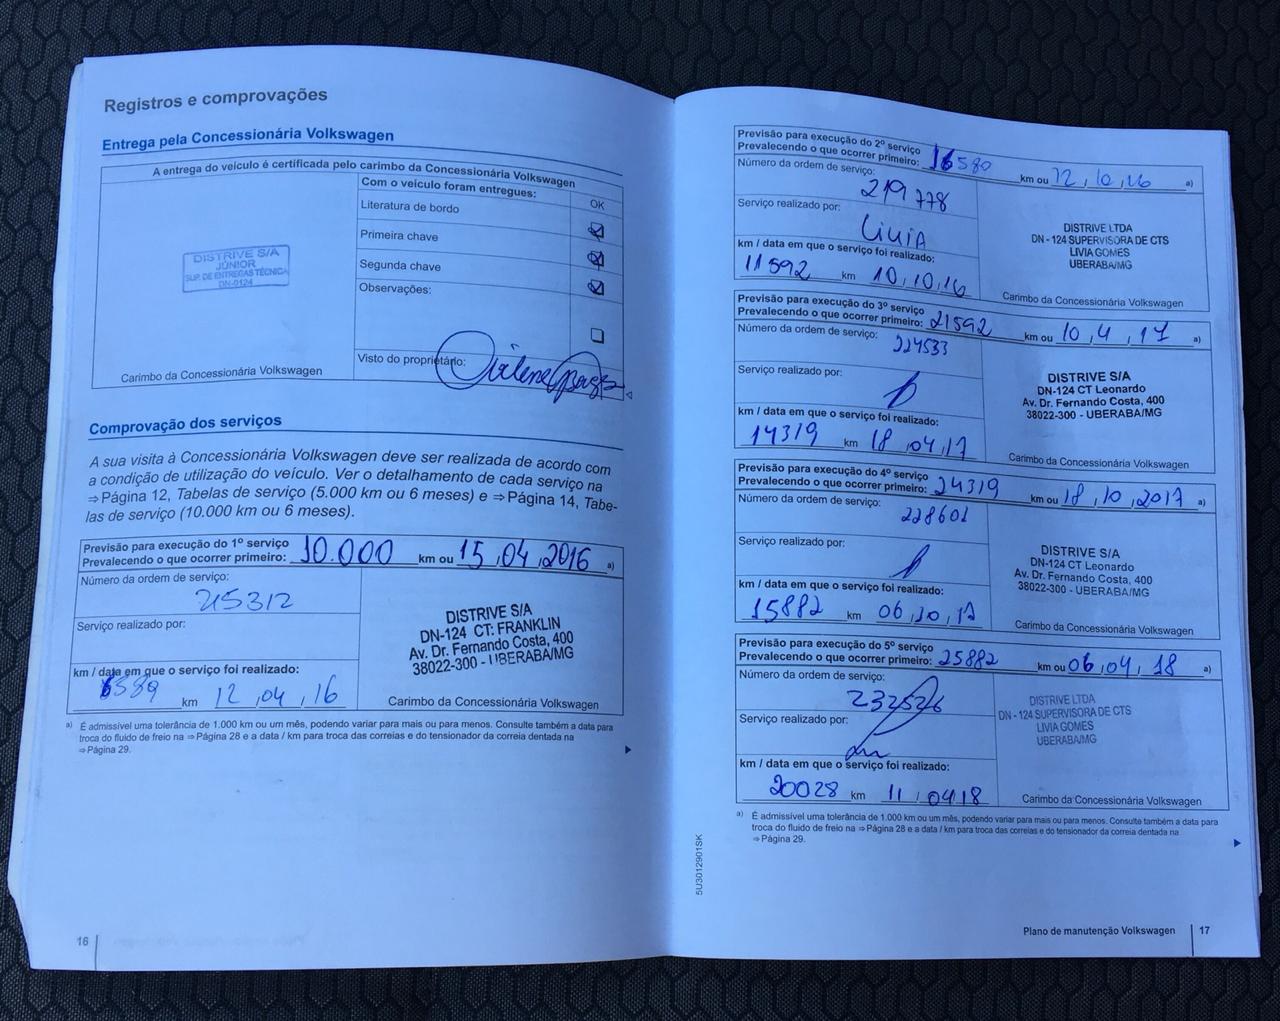 Registros e comprovações
Entrega pela Concessionária Volkswagen
A entrega do veículo é certificada pelo carimbo da Concessionária Volkswagen
DISTRIVE S/A
JÚNIOR
SUP. DE ENTREGAS TÉCNICA
DN-0124
Carimbo da Concessionária Volkswagen
Com o veículo foram entregues:
OK
Literatura de bordo
Primeira chave
Segunda chave
Observações:
Visto do proprietário:
Comprovação dos serviços
A sua visita à Concessionária Volkswagen deve ser realizada de acordo com
a condição de utilização do veículo. Ver o detalhamento de cada serviço na
⇒Página 12, Tabelas de serviço (5.000 km ou 6 meses) e ⇒Página 14, Tabe-
las de serviço (10.000 km ou 6 meses).
Previsão para execução do 1º serviço
Prevalecendo o que ocorrer primeiro: 10.000 km ou 15,04,2016 a)
Número da ordem de serviço:
215312
Serviço realizado por:
km / data em que o serviço foi realizado:
6589 km 12,04,16
DISTRIVE S/A
DN-124 CT: FRANKLIN
Av. Dr. Fernando Costa, 400
38022-300 - UBERABA/MG
Carimbo da Concessionária Volkswagen
a) É admissível uma tolerância de 1.000 km ou um mês, podendo variar para mais ou para menos. Consulte também a data para
troca do fluido de freio na ⇒Página 28 e a data / km para troca das correias e do tensionador da correia dentada na
⇒Página 29.
16
Previsão para execução do 2º serviço
Prevalecendo o que ocorrer primeiro: 16580 km ou 12,10,16 a)
Número da ordem de serviço:
219778
Serviço realizado por:
Livia
km / data em que o serviço foi realizado:
11592 km 10,10,16
DISTRIVE LTDA
DN - 124 SUPERVISORA DE CTS
LIVIA GOMES
UBERABA/MG
Carimbo da Concessionária Volkswagen
Previsão para execução do 3º serviço
Prevalecendo o que ocorrer primeiro: 21592 km ou 10,4,17 a)
Número da ordem de serviço:
224533
Serviço realizado por:
km / data em que o serviço foi realizado:
14319 km 18,04,17
DISTRIVE S/A
DN-124 CT Leonardo
Av. Dr. Fernando Costa, 400
38022-300 - UBERABA/MG
Carimbo da Concessionária Volkswagen
Previsão para execução do 4º serviço
Prevalecendo o que ocorrer primeiro: 24319 km ou 18,10,2017 a)
Número da ordem de serviço:
228601
Serviço realizado por:
km / data em que o serviço foi realizado:
15882 km 06,10,17
DISTRIVE S/A
DN-124 CT Leonardo
Av. Dr. Fernando Costa, 400
38022-300 - UBERABA/MG
Carimbo da Concessionária Volkswagen
Previsão para execução do 5º serviço
Prevalecendo o que ocorrer primeiro: 25882 km ou 06,04,18 a)
Número da ordem de serviço:
232526
Serviço realizado por:
km / data em que o serviço foi realizado:
20028 km 11,04,18
DISTRIVE LTDA
DN - 124 SUPERVISORA DE CTS
LIVIA GOMES
UBERABA/MG
Carimbo da Concessionária Volkswagen
a) É admissível uma tolerância de 1.000 km ou um mês, podendo variar para mais ou para menos. Consulte também a data para
troca do fluido de freio na ⇒Página 28 e a data / km para troca das correias e do tensionador da correia dentada na
⇒Página 29.
5U3012901SK
Plano de manutenção Volkswagen 17